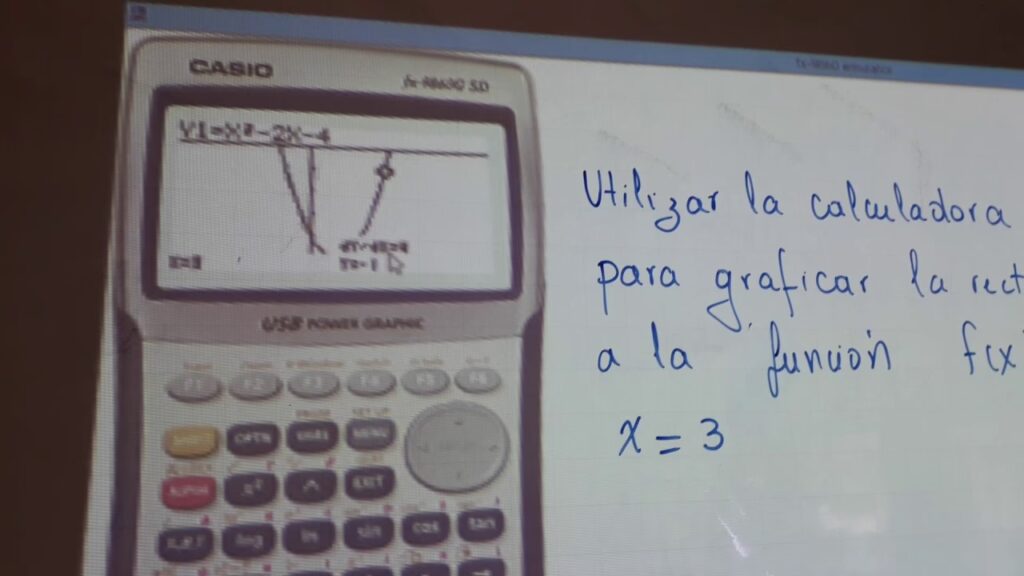 fx-9860 emulator
CASIO
fx-9860G SD
Y1=X²-2X-4
dY/dX=4
X=3
Y=-1
USB POWER GRAPHIC
Utilizar la calculadora
para graficar la rect
a la función f(x
x = 3
F1 F2 F3 F4 F5 F6
SET UP
SHIFT OPTN VARS MENU
ALPHA x² ^ EXIT
X,θ,T log ln sin cos tan